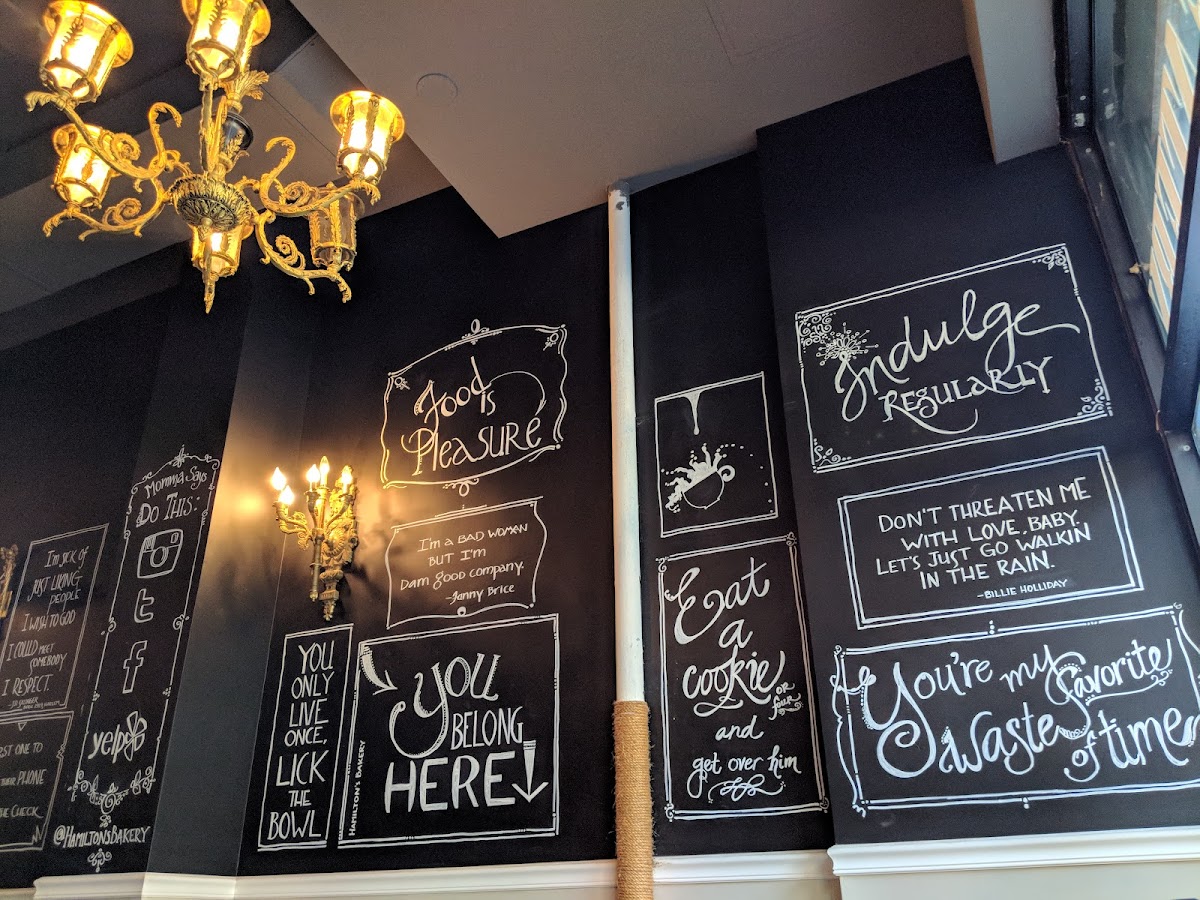 I'm sick of
just liking
people
I wish to God
I could meet
somebody
I respect.
one to
their phone
the check
Momma Says
Do This:
yelp
@HamiltonsBakery
You
only
live
once,
lick
the
bowl
Food
is
Pleasure
I'm a bad woman
but I'm
Dam good company.
-Fanny Brice
You
belong
here
Hamilton's Bakery
Eat
a
cookie
or
four
and
get over him
Indulge
Regularly
Don't threaten me
with love, baby.
Let's just go walkin
in the rain.
-Billie Holliday
You're my
favorite
waste
of time